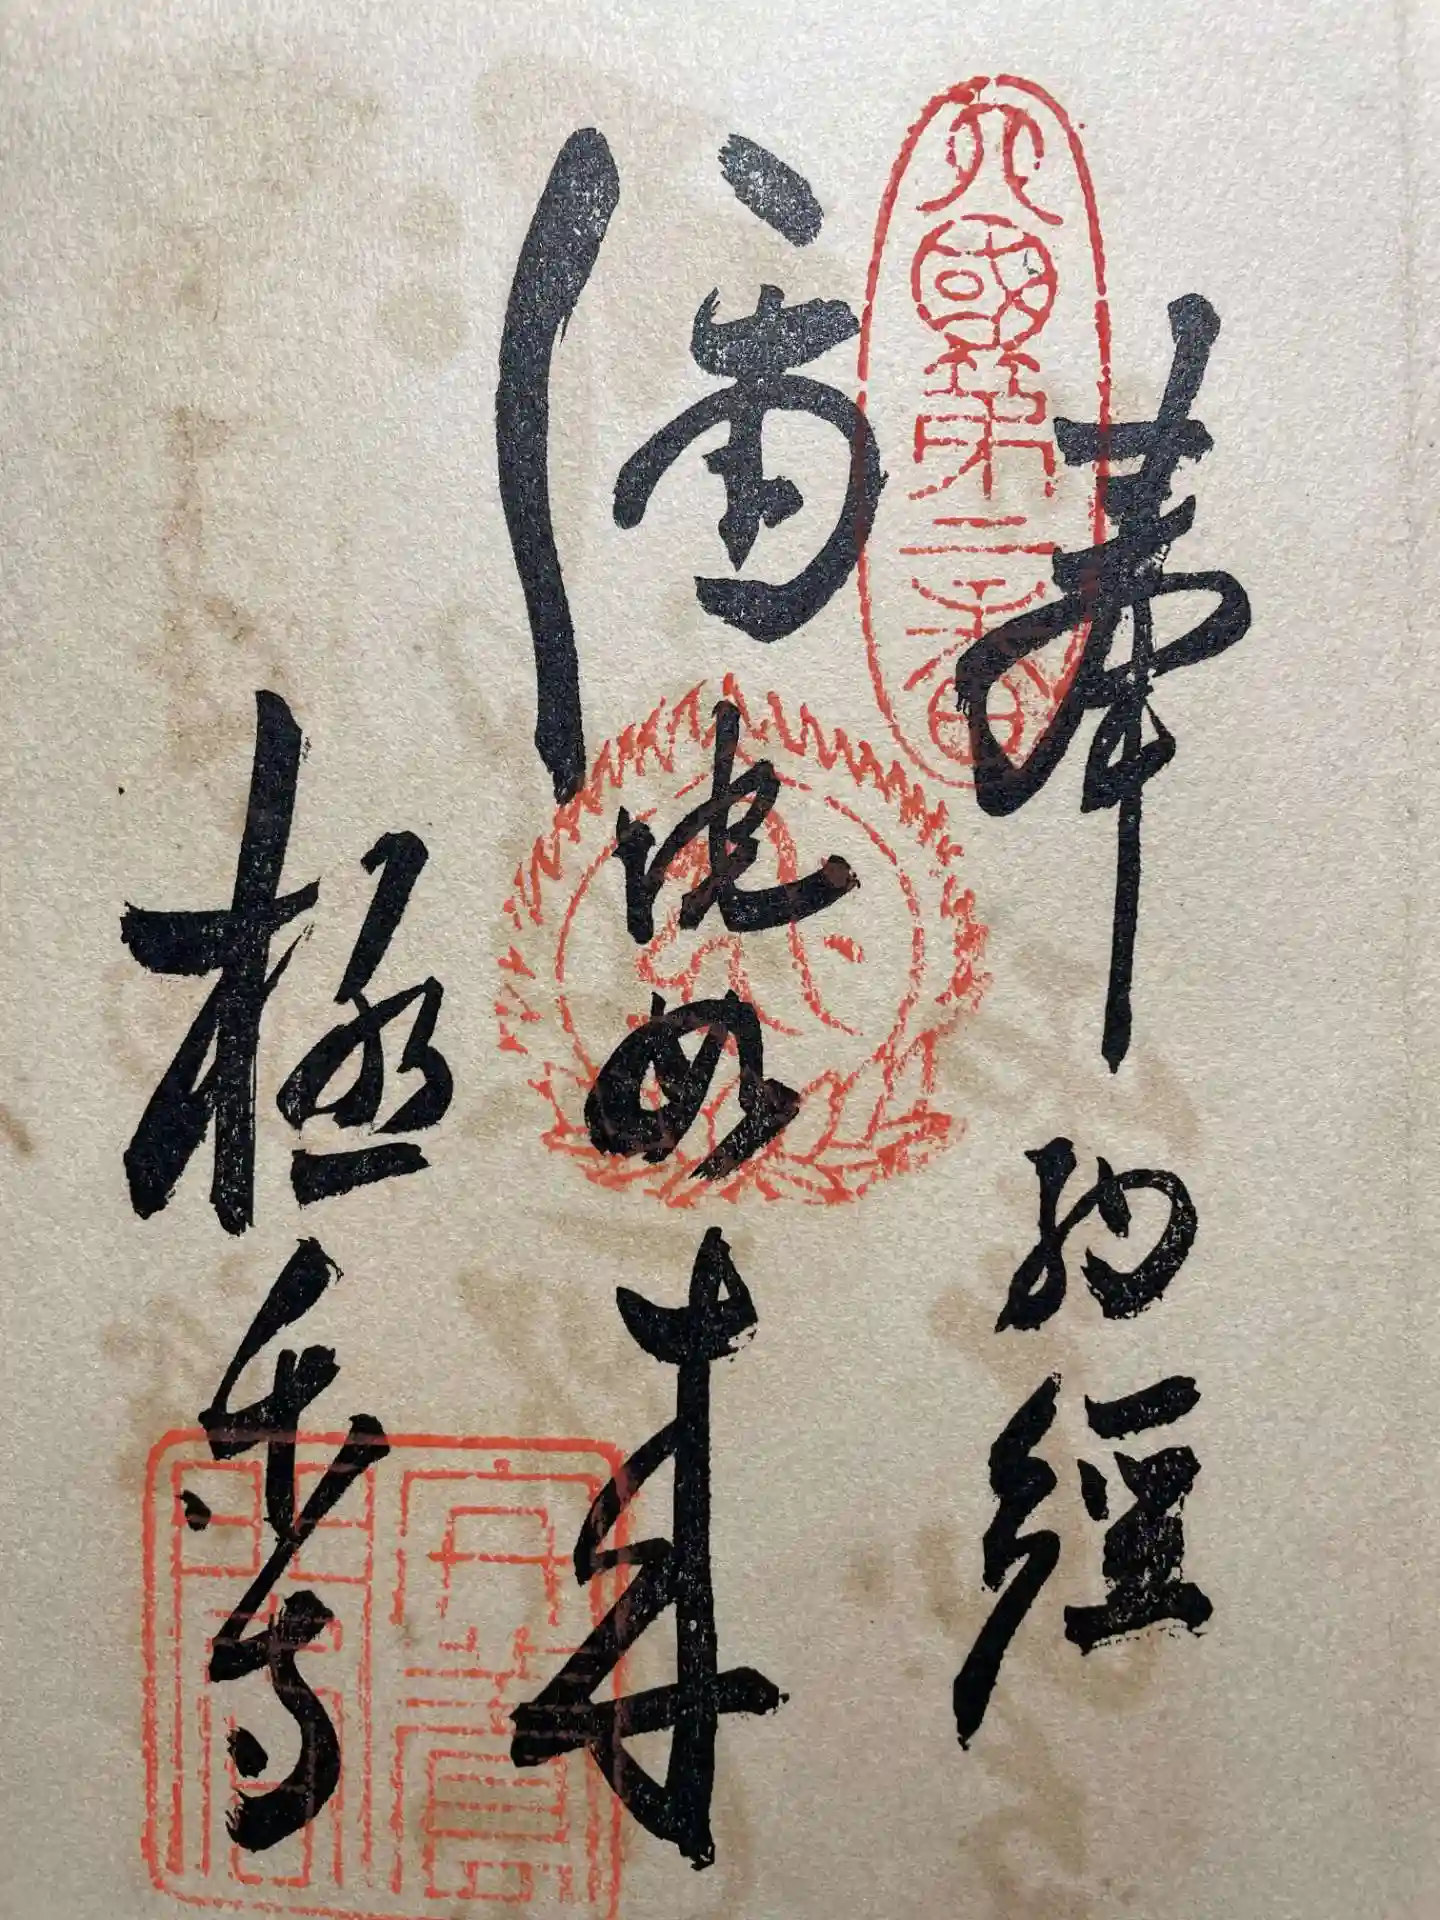 奉納經
四國第二番
阿弥陀如来
極楽寺